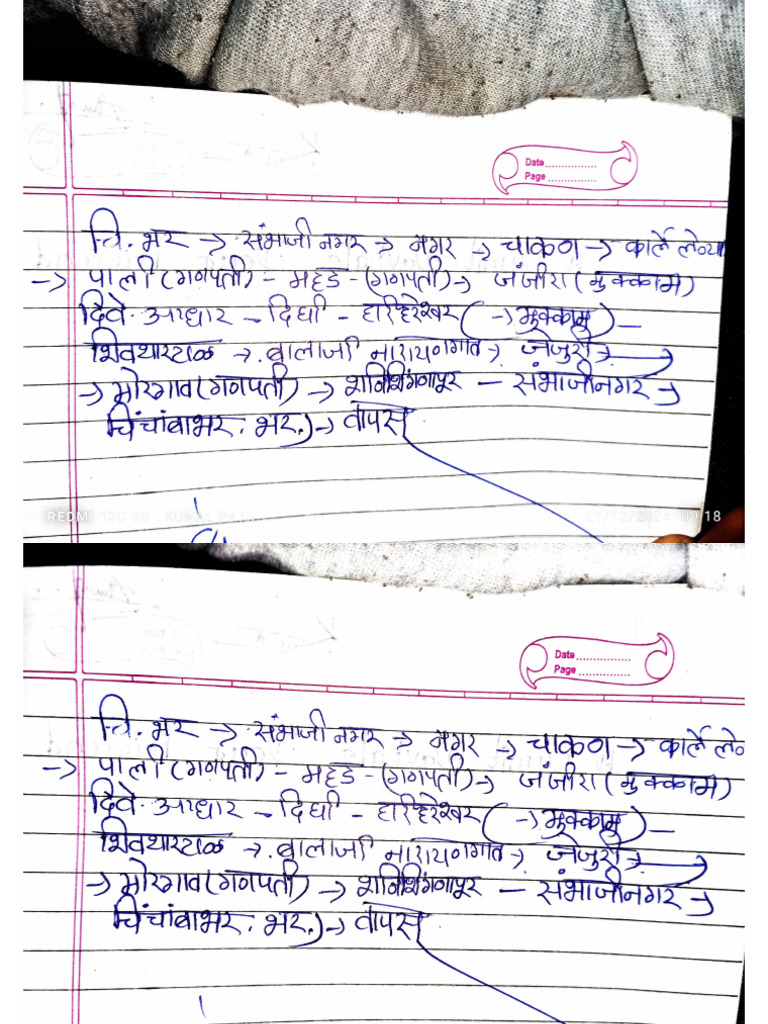 Date ..................
Page ..................
चि. भर → संभाजी नगर → नगर → चाकण → कार्ले लेण्या
→ पाली (गणपती) - महड - (गणपती) → जंजीरा (मुक्काम)
दिवे. आगार - दिघी - हरिहरेश्वर (→ मुक्काम) -
शिवथरघळ → . बालाजी नारायणगाव → जेजुरी →
→ मोरगाव (गणपती) → शनिशिंगणापूर - संभाजीनगर →
चिंचांबाभर . भर.) → वापस
REDMI 13C 5G
21/12/2024 09:18
Date ..................
Page ..................
चि. भर → संभाजी नगर → नगर → चाकण → कार्ले ले
→ पाली (गणपती) - महड - (गणपती) → जंजीरा (मुक्काम)
दिवे. आगार - दिघी - हरिहरेश्वर (→ मुक्काम) -
शिवथरघळ → . बालाजी नारायणगाव → जेजुरी →
→ मोरगाव (गणपती) → शनिशिंगणापूर - संभाजीनगर →
चिंचांबाभर . भर.) → वापस